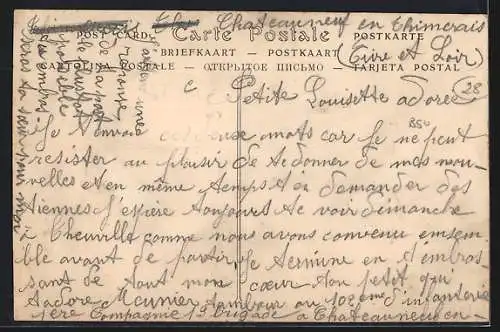 Chateauneuf en Thimerais
POST CARD Carte Postale POSTKARTE
BRIEFKAART — POSTKAART
(Eure et Loir)
CARTOLINA POSTALE — ОТКРЫТОЕ ПИСЬМО — TARJETA POSTAL
28
Petite Louisette adorée
Je t'envoie mots car je ne peut
resister au plaisir de te donner de mes nou-
velles et en même temps t'en demander des
tiennes j'espère toujours te voir dimanche
a Cheuville comme nous avons convenu emsem
ble avant de partir je termine en t'embras
sant de tout mon cœur ton petit qui
t'adore Meunier tambour au 102eme d'infanterie
1ère Compagnie 1º brigade a Chateauneuf en
850
le plustot
possible
de ma part